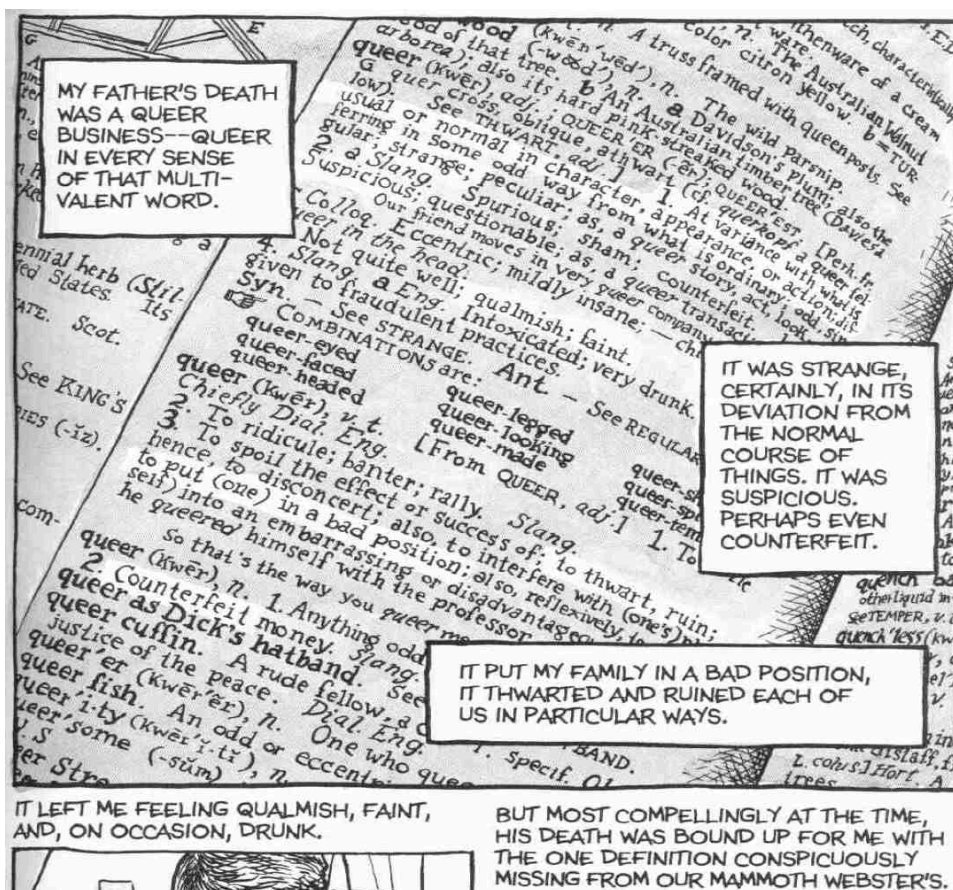 MY FATHER'S DEATH
WAS A QUEER
BUSINESS--QUEER
IN EVERY SENSE
OF THAT MULTI-
VALENT WORD.
G
E
ennial herb (Stil-
States. Its
Scot.
See KING'S
(-ĭz).
com-
wood (kwēn'wŏd'), n. A truss framed with queenposts. See
(-wŏŏd'), n. The wild parsnip.
God of that tree. a Davidson's plum; also the
arborea); also its hard pink-streaked wood.
b An Australian timber tree (Davies
queer (kwēr), adj.; QUEER'ER (-ēr); QUEER'EST. [Perh. fr.
G quer cross, oblique, athwart (cf. querkopf a queer fel-
low). See THWART, adj.] 1. At variance with what is
usual or normal in character, appearance, or action; dif-
fering in some odd way from what is ordinary; odd; sin-
gular; strange; peculiar; as, a queer story, act, look.
2. a Slang. Spurious; sham; counterfeit.
Suspicious; questionable; as, a queer transac
Our friend moves in very queer company
Colloq. Eccentric; mildly insane;
queer in the head.
Not quite well; qualmish; faint.
4. Slang. a Eng. Intoxicated; very drunk.
given to fraudulent practices.
Syn. — See STRANGE. Ant. — See REGULAR
☞ COMBINATIONS are:
queer-eyed queer-legged
queer-faced queer-looking
queer-headed queer-made
queer (kwēr), v. t. [From QUEER, adj.] 1. To
Chiefly Dial. Eng.
2. To ridicule; banter; rally. Slang.
3. To spoil the effect or success of; to thwart, ruin;
hence, to disconcert; also, to interfere with (one's)
to put (one) in a bad position; also, reflexively, to
self) into an embarrassing or disadvantageou
he queered himself with the professor
So that's the way you queer me
queer (kwēr), n. 1. Anything odd
2. Counterfeit money. Slang.
queer as Dick's hatband. See BAND.
queer cuffin. A rude fellow; a
justice of the peace. Dial. Eng.
queer'er (kwēr'ēr), n. One who quee
queer fish. An odd or eccentric
queer'i·ty (kwēr'ĭ·tĭ), n.
queer'some (-sŭm)
IT WAS STRANGE,
CERTAINLY, IN ITS
DEVIATION FROM
THE NORMAL
COURSE OF
THINGS. IT WAS
SUSPICIOUS.
PERHAPS EVEN
COUNTERFEIT.
IT PUT MY FAMILY IN A BAD POSITION,
IT THWARTED AND RUINED EACH OF
US IN PARTICULAR WAYS.
IT LEFT ME FEELING QUALMISH, FAINT,
AND, ON OCCASION, DRUNK.
BUT MOST COMPELLINGLY AT THE TIME,
HIS DEATH WAS BOUND UP FOR ME WITH
THE ONE DEFINITION CONSPICUOUSLY
MISSING FROM OUR MAMMOTH WEBSTER'S.